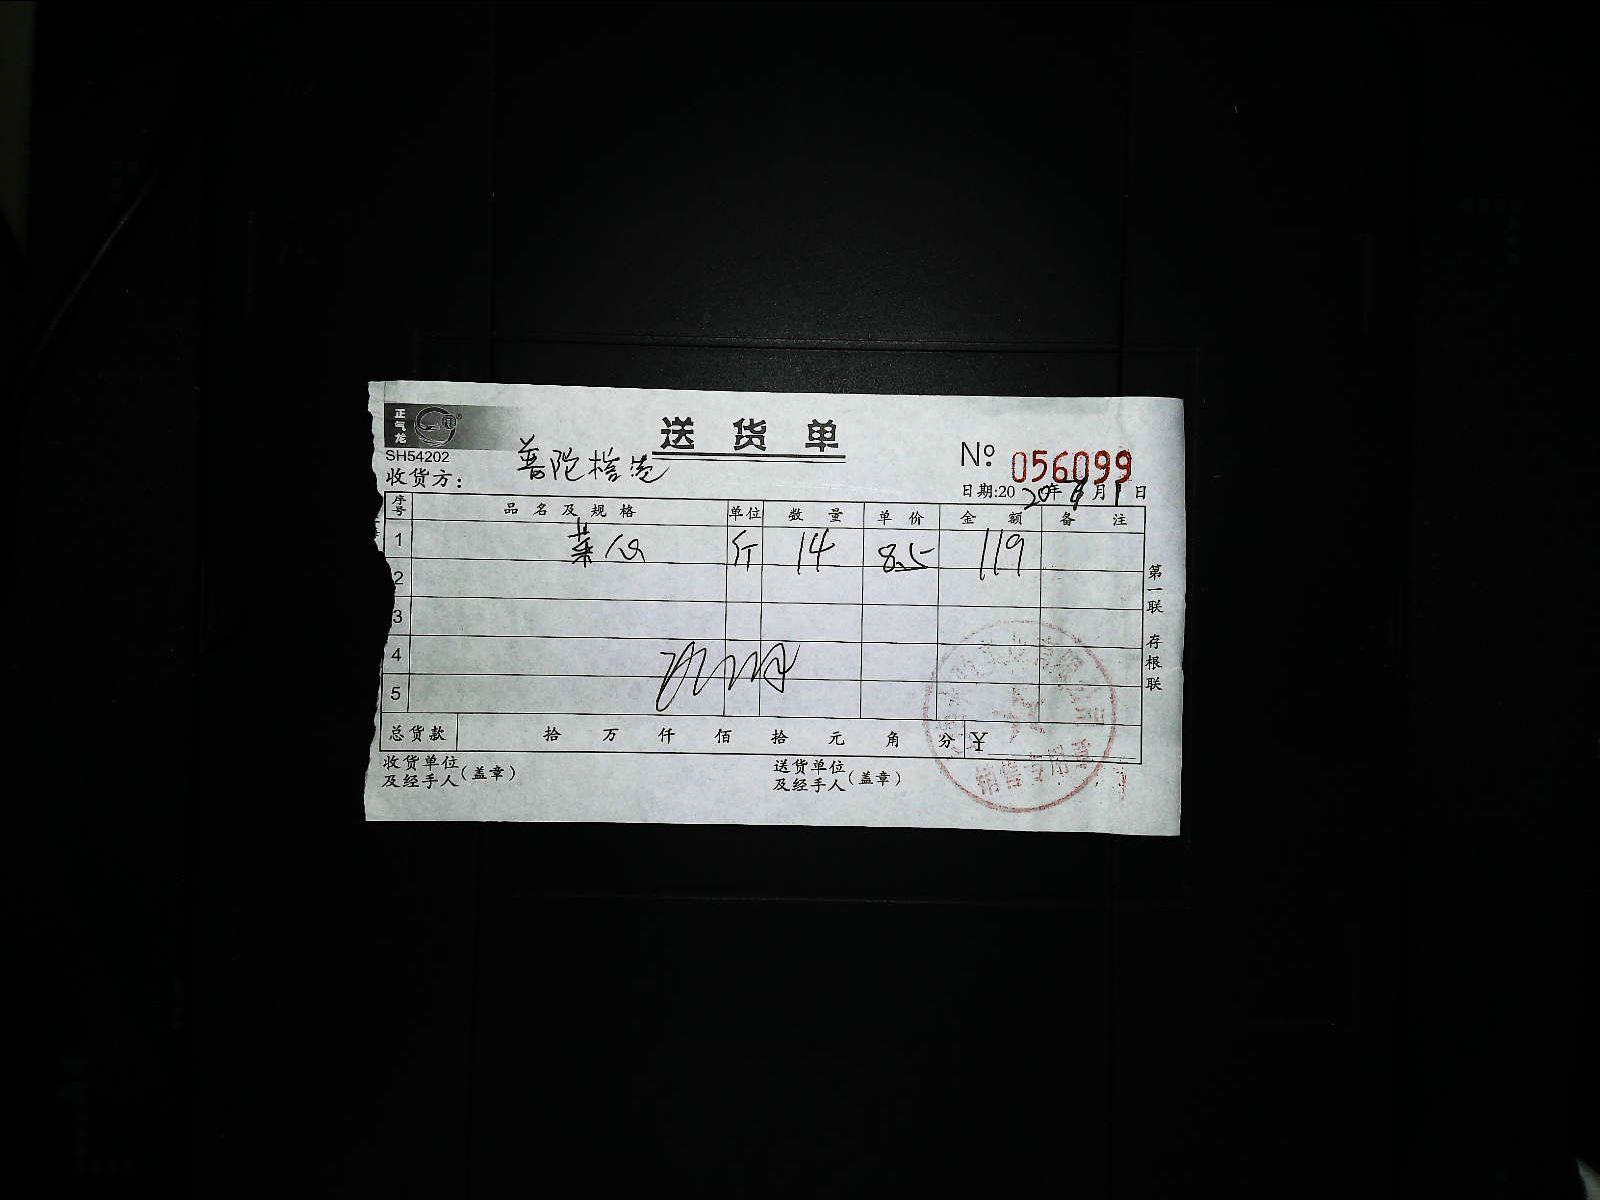 正气龙
送货单
SH54202
No 056099
收货方: 普陀
日期:20 20年 月1日
序号 品名及规格 单位 数量 单价 金额 备注
1 菜心 斤 14 8.5 119
2
3
4
5
总货款 拾 万 仟 佰 拾 元 角 分 ¥
收货单位及经手人(盖章) 送货单位及经手人(盖章)
第一联 存根联
销售专用章